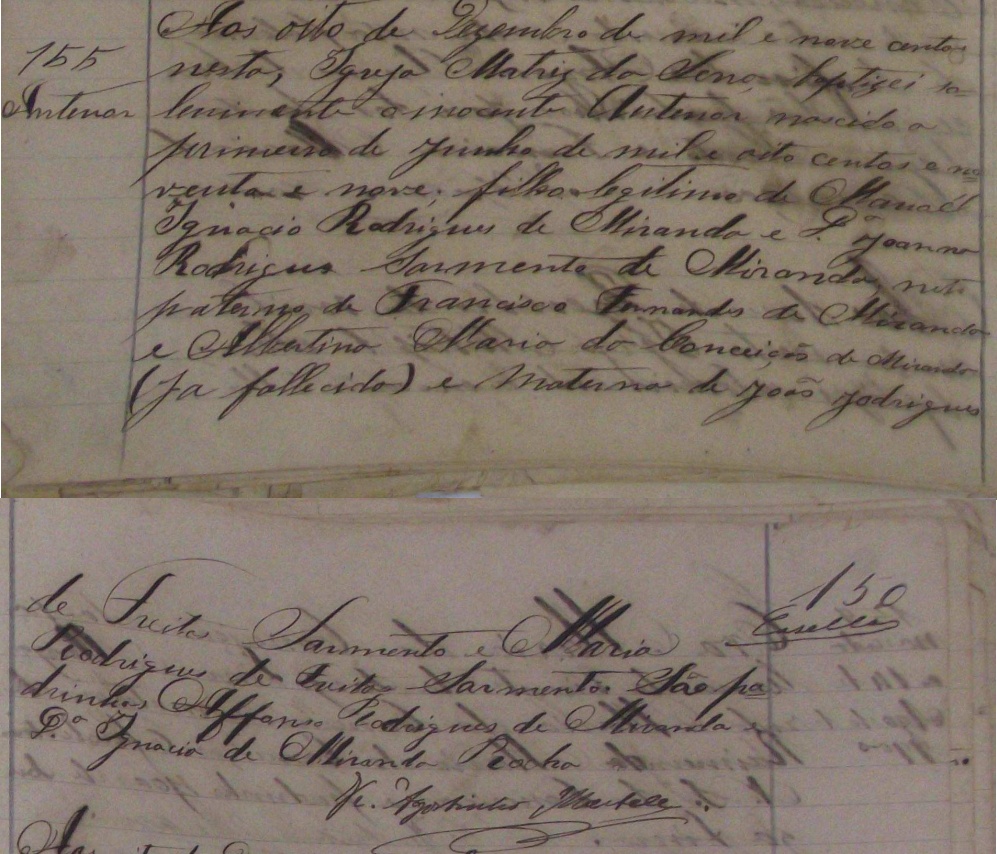 155
Antenor
Aos oito de Dezembro de mil e nove centos
nesta, Igreja Matriz da Sena, baptizei so=
lenimente o inocente Antenor nascido a
primeiro de Junho de mil e oito centos e no
venta e nove, filho legitimo de Manoel
Ignacio Rodrigues de Miranda e D.ª Joanna
Rodrigues Sarmento de Miranda, neto
paterno de Francisco Fernandes de Miranda
e Albertina Maria da Conceição de Miranda
(ja fallecida) e materno de João Rodrigues
de Freitas Sarmento e Maria
Rodrigues de Freitas Sarmento. São pa
drinhos Affonso Rodrigues de Miranda e
D.ª Ignacia de Miranda Rocha
Agostinho
150